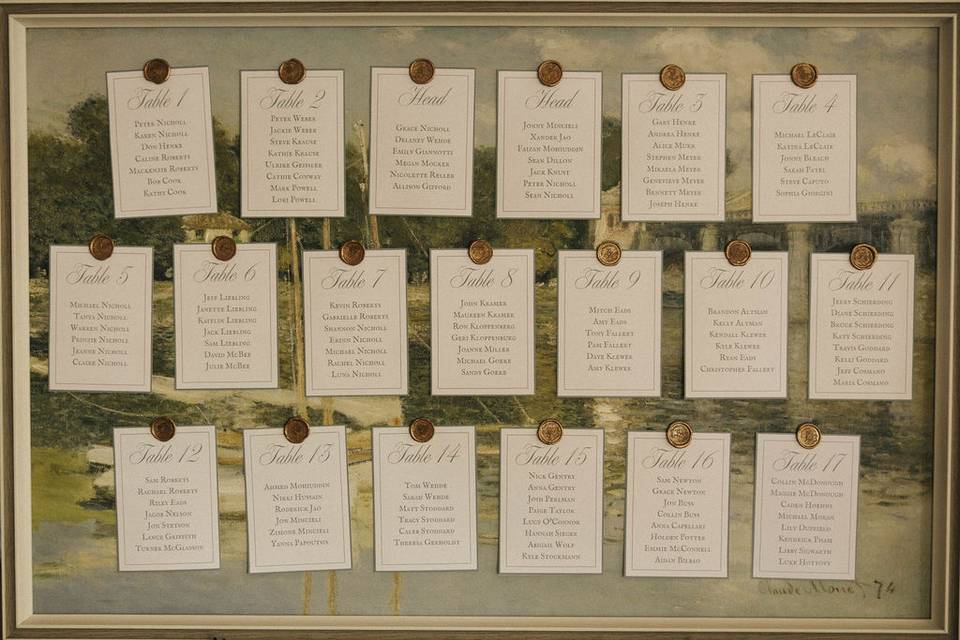 Table 1
Peter Nicholl
Karen Nicholl
Don Henke
Caline Roberts
Mackenzie Roberts
Bob Cook
Kathy Cook
Table 2
Peter Weber
Jackie Weber
Steve Krause
Kathie Krause
Ulrike Geissler
Cathie Conway
Mark Powell
Lori Powell
Head
Grace Nicholl
Delaney Wehde
Emily Giannotti
Megan Mocker
Nicolette Reller
Allison Gifford
Head
Jonny Miscieli
Xander Jao
Faizan Mohiuddin
Sean Dillon
Jack Knust
Peter Nicholl
Sean Nicholl
Table 3
Gary Henke
Andrea Henke
Alice Murr
Stephen Meyer
Mikaela Meyer
Genevieve Meyer
Bennett Meyer
Joseph Henke
Table 4
Michael LeClair
Katina LeClair
Jonny Bleach
Sarah Patel
Steve Caputo
Sophia Giorgini
Table 5
Michael Nicholl
Tanya Nicholl
Warren Nicholl
Prinzie Nicholl
Jeanne Nicholl
Claire Nicholl
Table 6
Jeff Liebling
Janette Liebling
Kaitlin Liebling
Jack Liebling
Sam Liebling
David McBee
Julie McBee
Table 7
Kevin Roberts
Gabrielle Roberts
Shannon Nicholl
Erinn Nicholl
Michael Nicholl
Rachel Nicholl
Luna Nicholl
Table 8
John Kramer
Maureen Kramer
Ron Kloppenberg
Geri Kloppenburg
Joanne Miller
Michael Goeke
Sandy Goeke
Table 9
Mitch Eads
Amy Eads
Tony Fallert
Pam Fallert
Dave Klewer
Amy Klewer
Table 10
Brandon Altman
Kelly Altman
Kendall Klewer
Kyle Klewer
Ryan Eads
Christopher Fallert
Table 11
Jerry Schierding
Diane Schierding
Bruce Schierding
Katy Schierding
Travis Goddard
Kelli Goddard
Jeff Cosmano
Maria Cosmano
Table 12
Sam Roberts
Rachael Roberts
Riley Eads
Jacob Nelson
Jon Stetson
Lance Griffith
Turner McGlasson
Table 13
Ahmed Mohiuddin
Nikki Hussain
Roderick Jao
Jon Mincieli
Zimone Mincieli
Yanna Papoutsis
Table 14
Tom Wehde
Sarah Wehde
Matt Stoddard
Tracy Stoddard
Caleb Stoddard
Theresa Gerholdt
Table 15
Nick Gentry
Anna Gentry
Josh Perlman
Paige Taylor
Lucy O'Connor
Hannah Sieger
Abigail Wolf
Kyle Stockmann
Table 16
Sam Newton
Grace Newton
Jon Buss
Collin Buss
Anna Capellari
Holden Potter
Emmie McConnell
Aidan Bilbao
Table 17
Collin McDonough
Maggie McDonough
Caden Hoehns
Michael Moran
Lily Duffield
Kendrick Pham
Libby Sigwarth
Luke Hottovy
Claude Monet 74